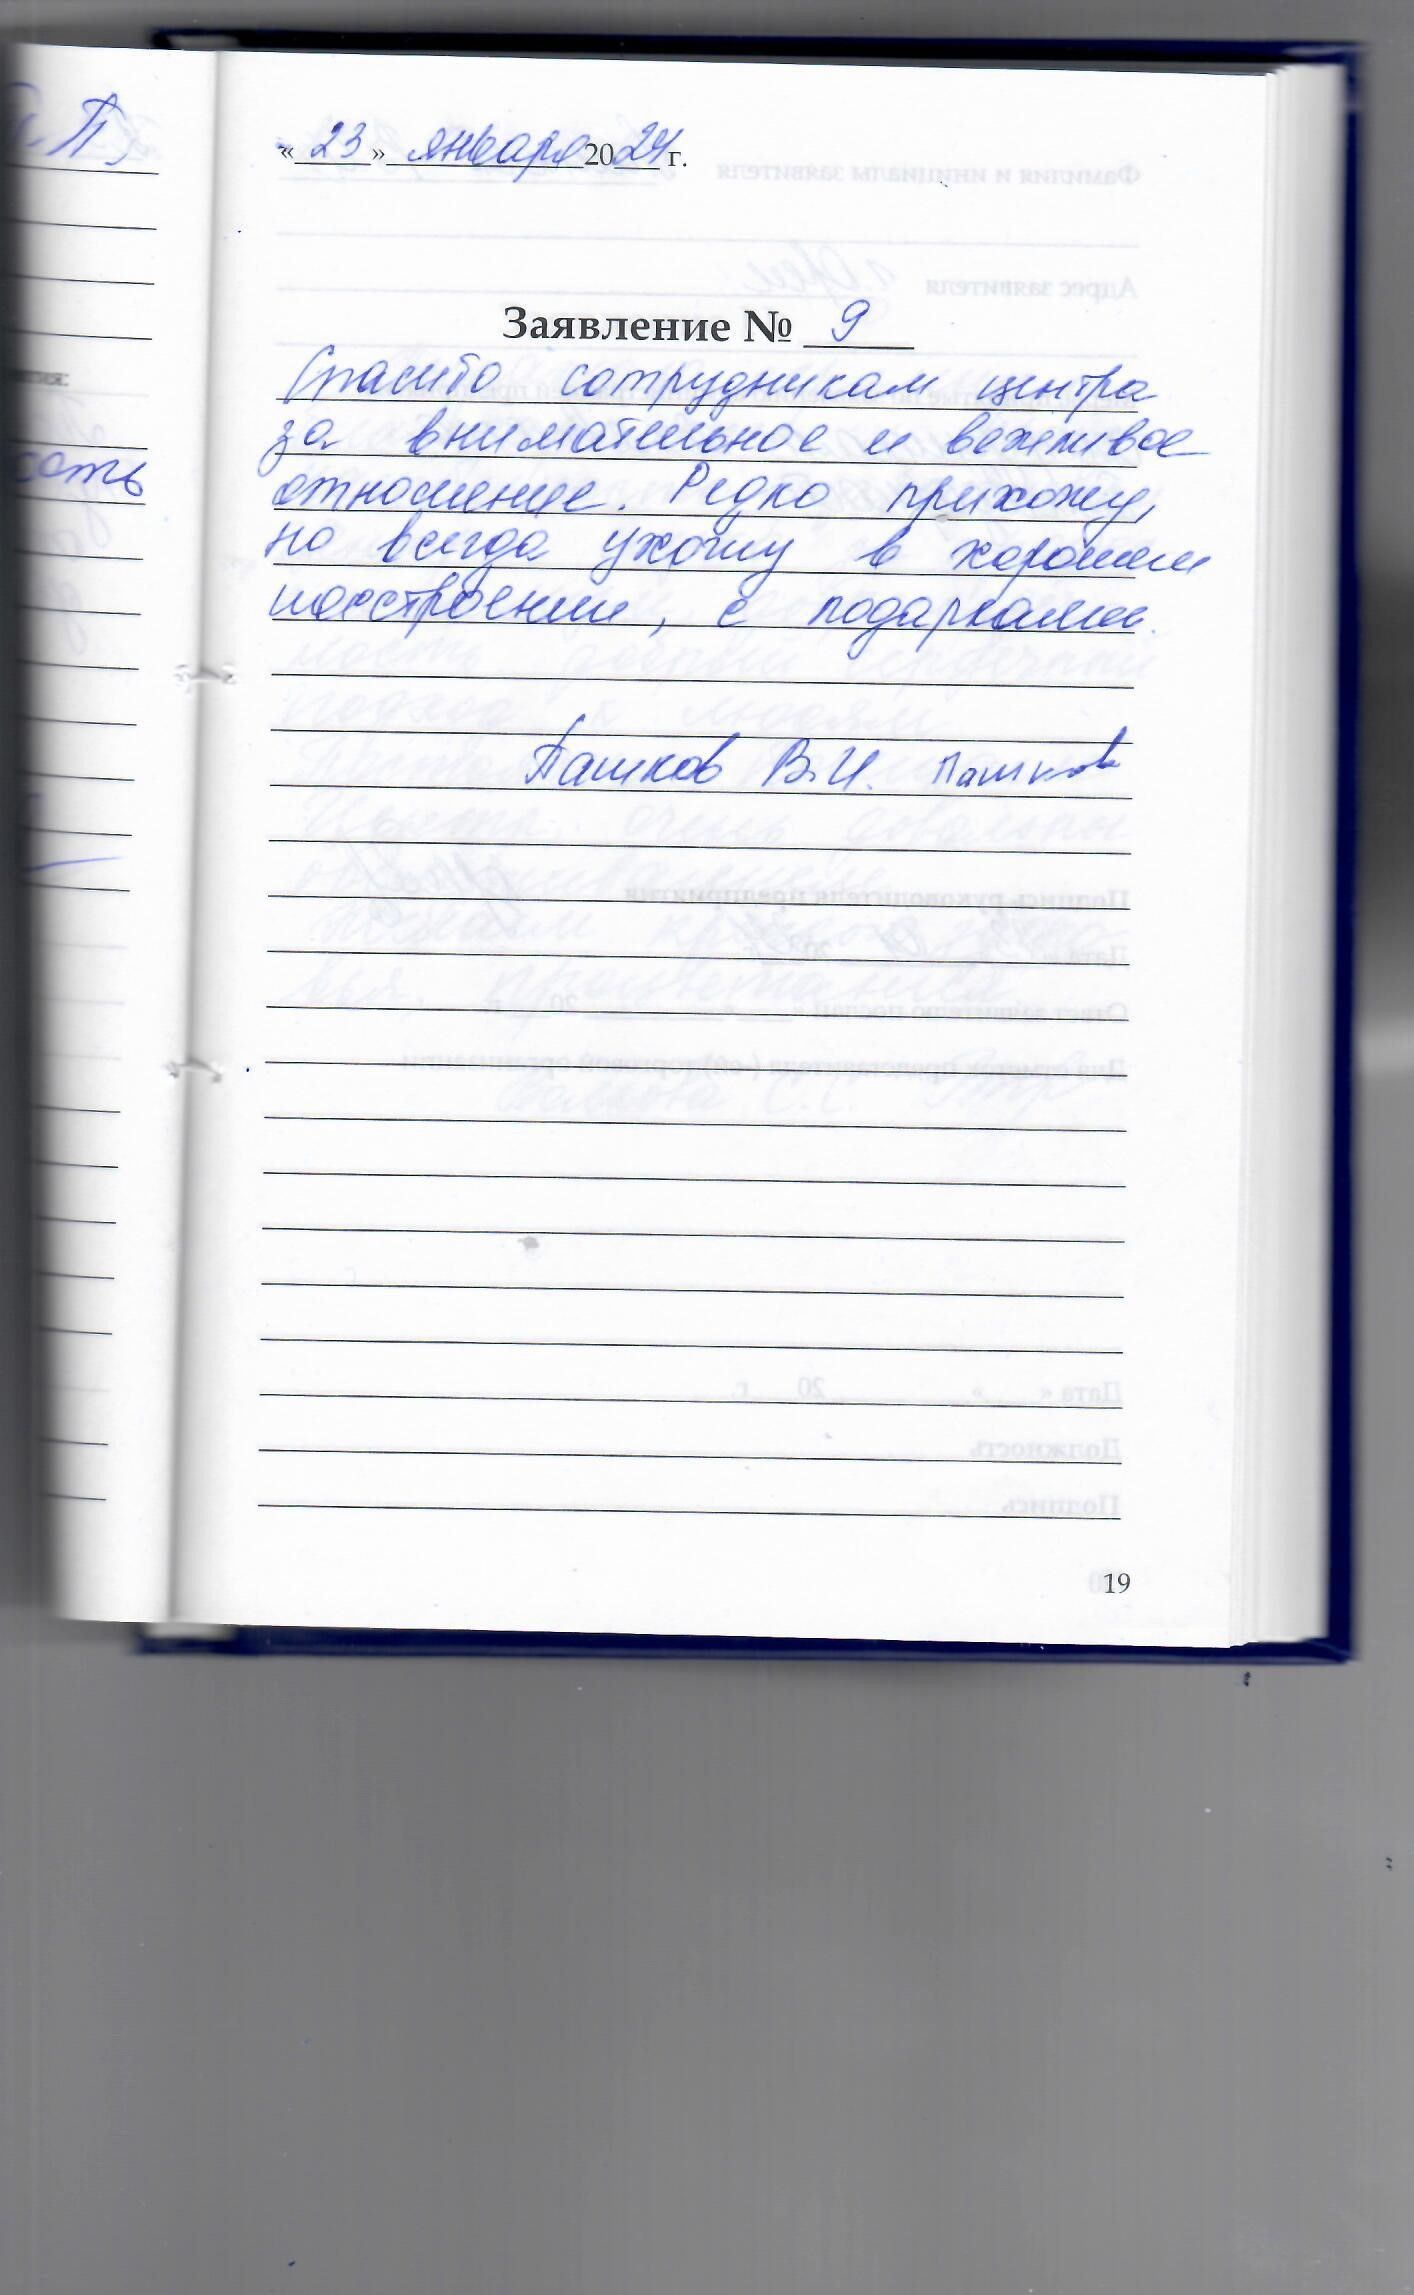 «23» января 2024 г.
Заявление № 9
Спасибо сотрудникам центра
за внимательное и вежливое
отношение. Редко прихожу,
но всегда ухожу в хорошем
настроении, с подарками.
Пашков В.И. Пашков
19